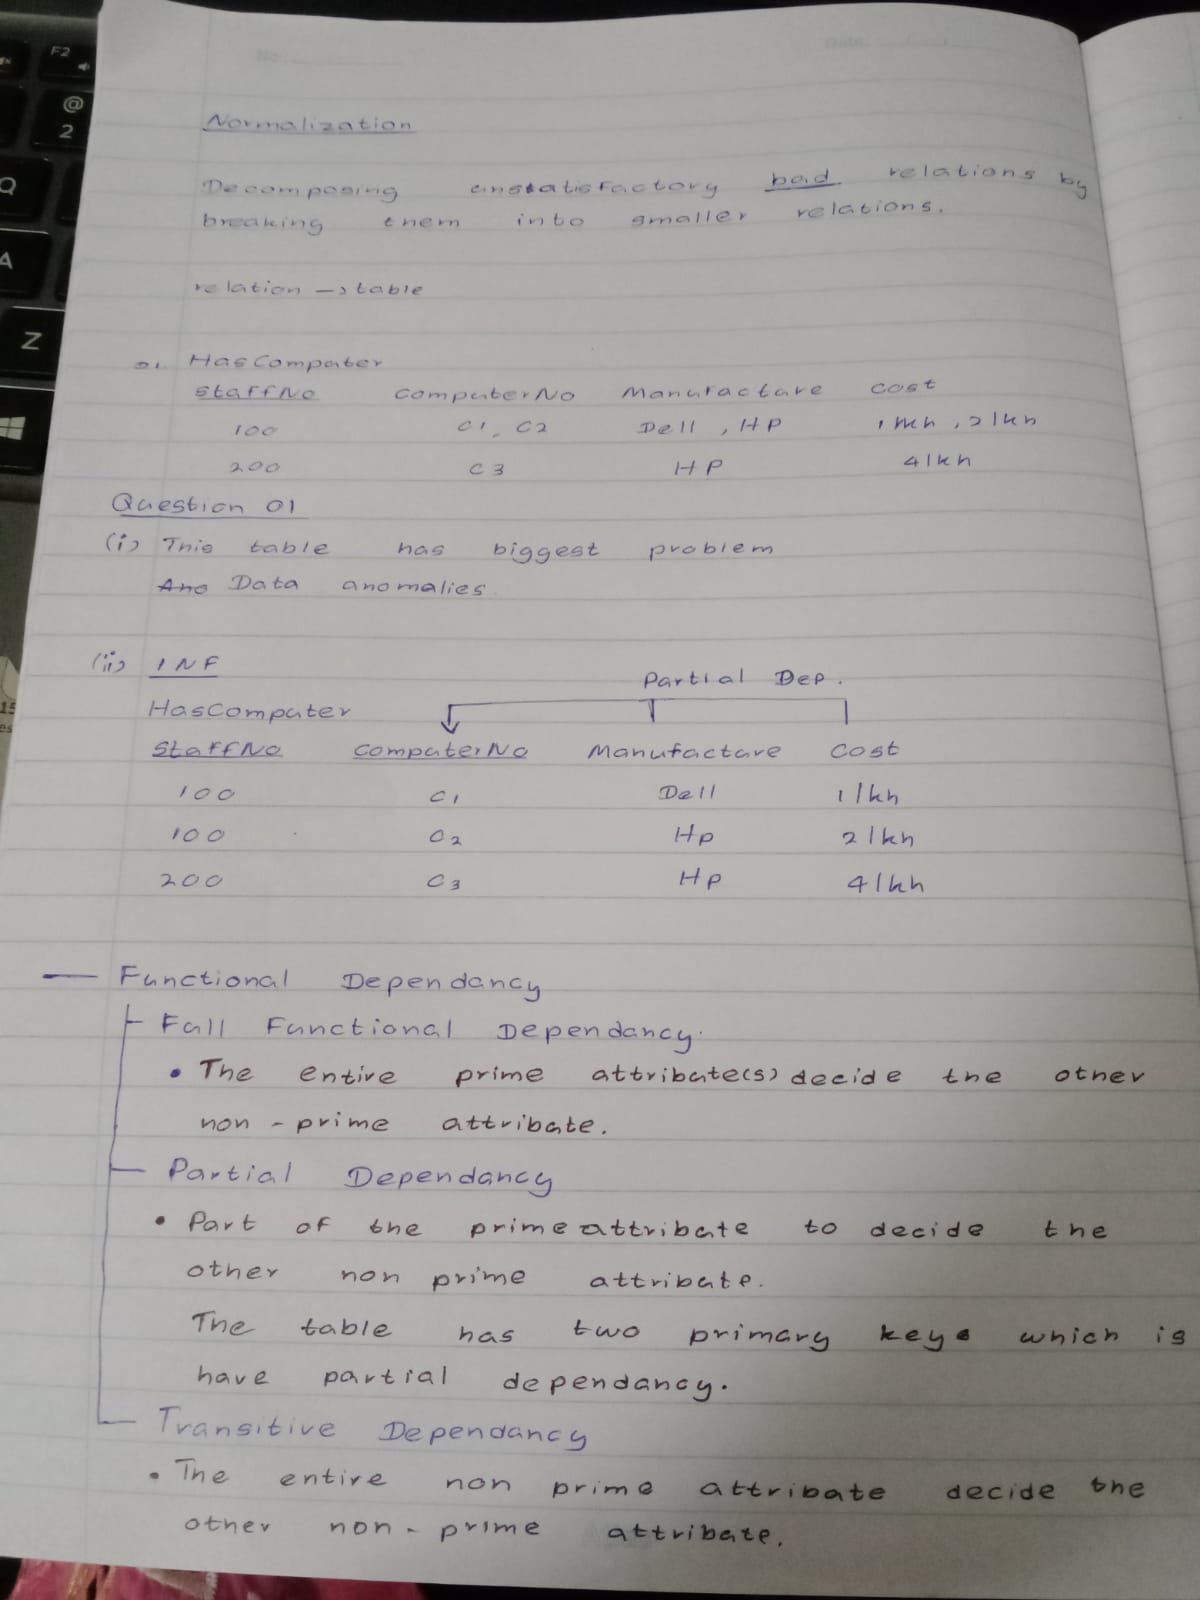 No:
Date:
Normalization
Decomposing unstatisfactory bad relations by
breaking them into smaller relations.
relation → table
01. HasComputer
StaffNo ComputerNo Manufacture cost
100 C1, C2 Dell, HP 1 lkh, 2 lkh
200 C3 HP 4 lkh
Question 01
(i) This table has biggest problem
Ans Data anomalies.
(ii) 1NF
Partial Dep.
HasComputer
StaffNo ComputerNo Manufacture Cost
100 C1 Dell 1 lkh
100 C2 Hp 2 lkh
200 C3 Hp 4 lkh
— Functional Dependancy
Full Functional Dependancy.
• The entire prime attribute(s) decide the other
non-prime attribute.
Partial Dependancy
• Part of the prime attribute to decide the
other non prime attribute.
The table has two primary keys which is
have partial dependancy.
Transitive Dependancy
• The entire non prime attribute decide the
other non-prime attribute.
F2
@
2
Q
A
Z
15